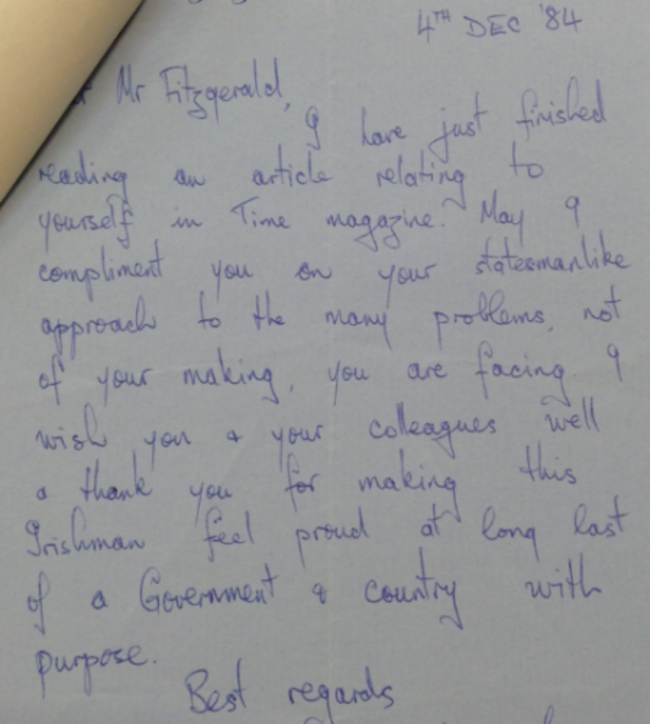 4TH DEC '84
Mr Fitzgerald,
I have just finished
reading an article relating to
yourself in Time magazine. May I
compliment you on your statesmanlike
approach to the many problems, not
of your making, you are facing. I
wish you & your colleagues well
& thank you for making this
Irishman feel proud at long last
of a Government & country with
purpose.
Best regards